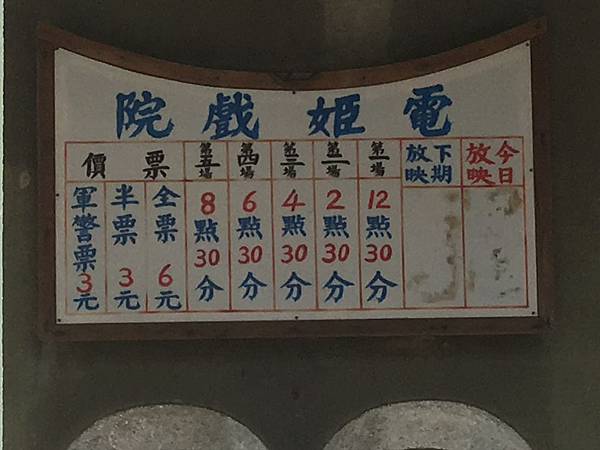 電姬戲院
今日
放映
下期
放映
第一場
12點30分
第二場
2點30分
第三場
4點30分
第四場
6點30分
第五場
8點30分
票價
全票6元
半票3元
軍警票3元